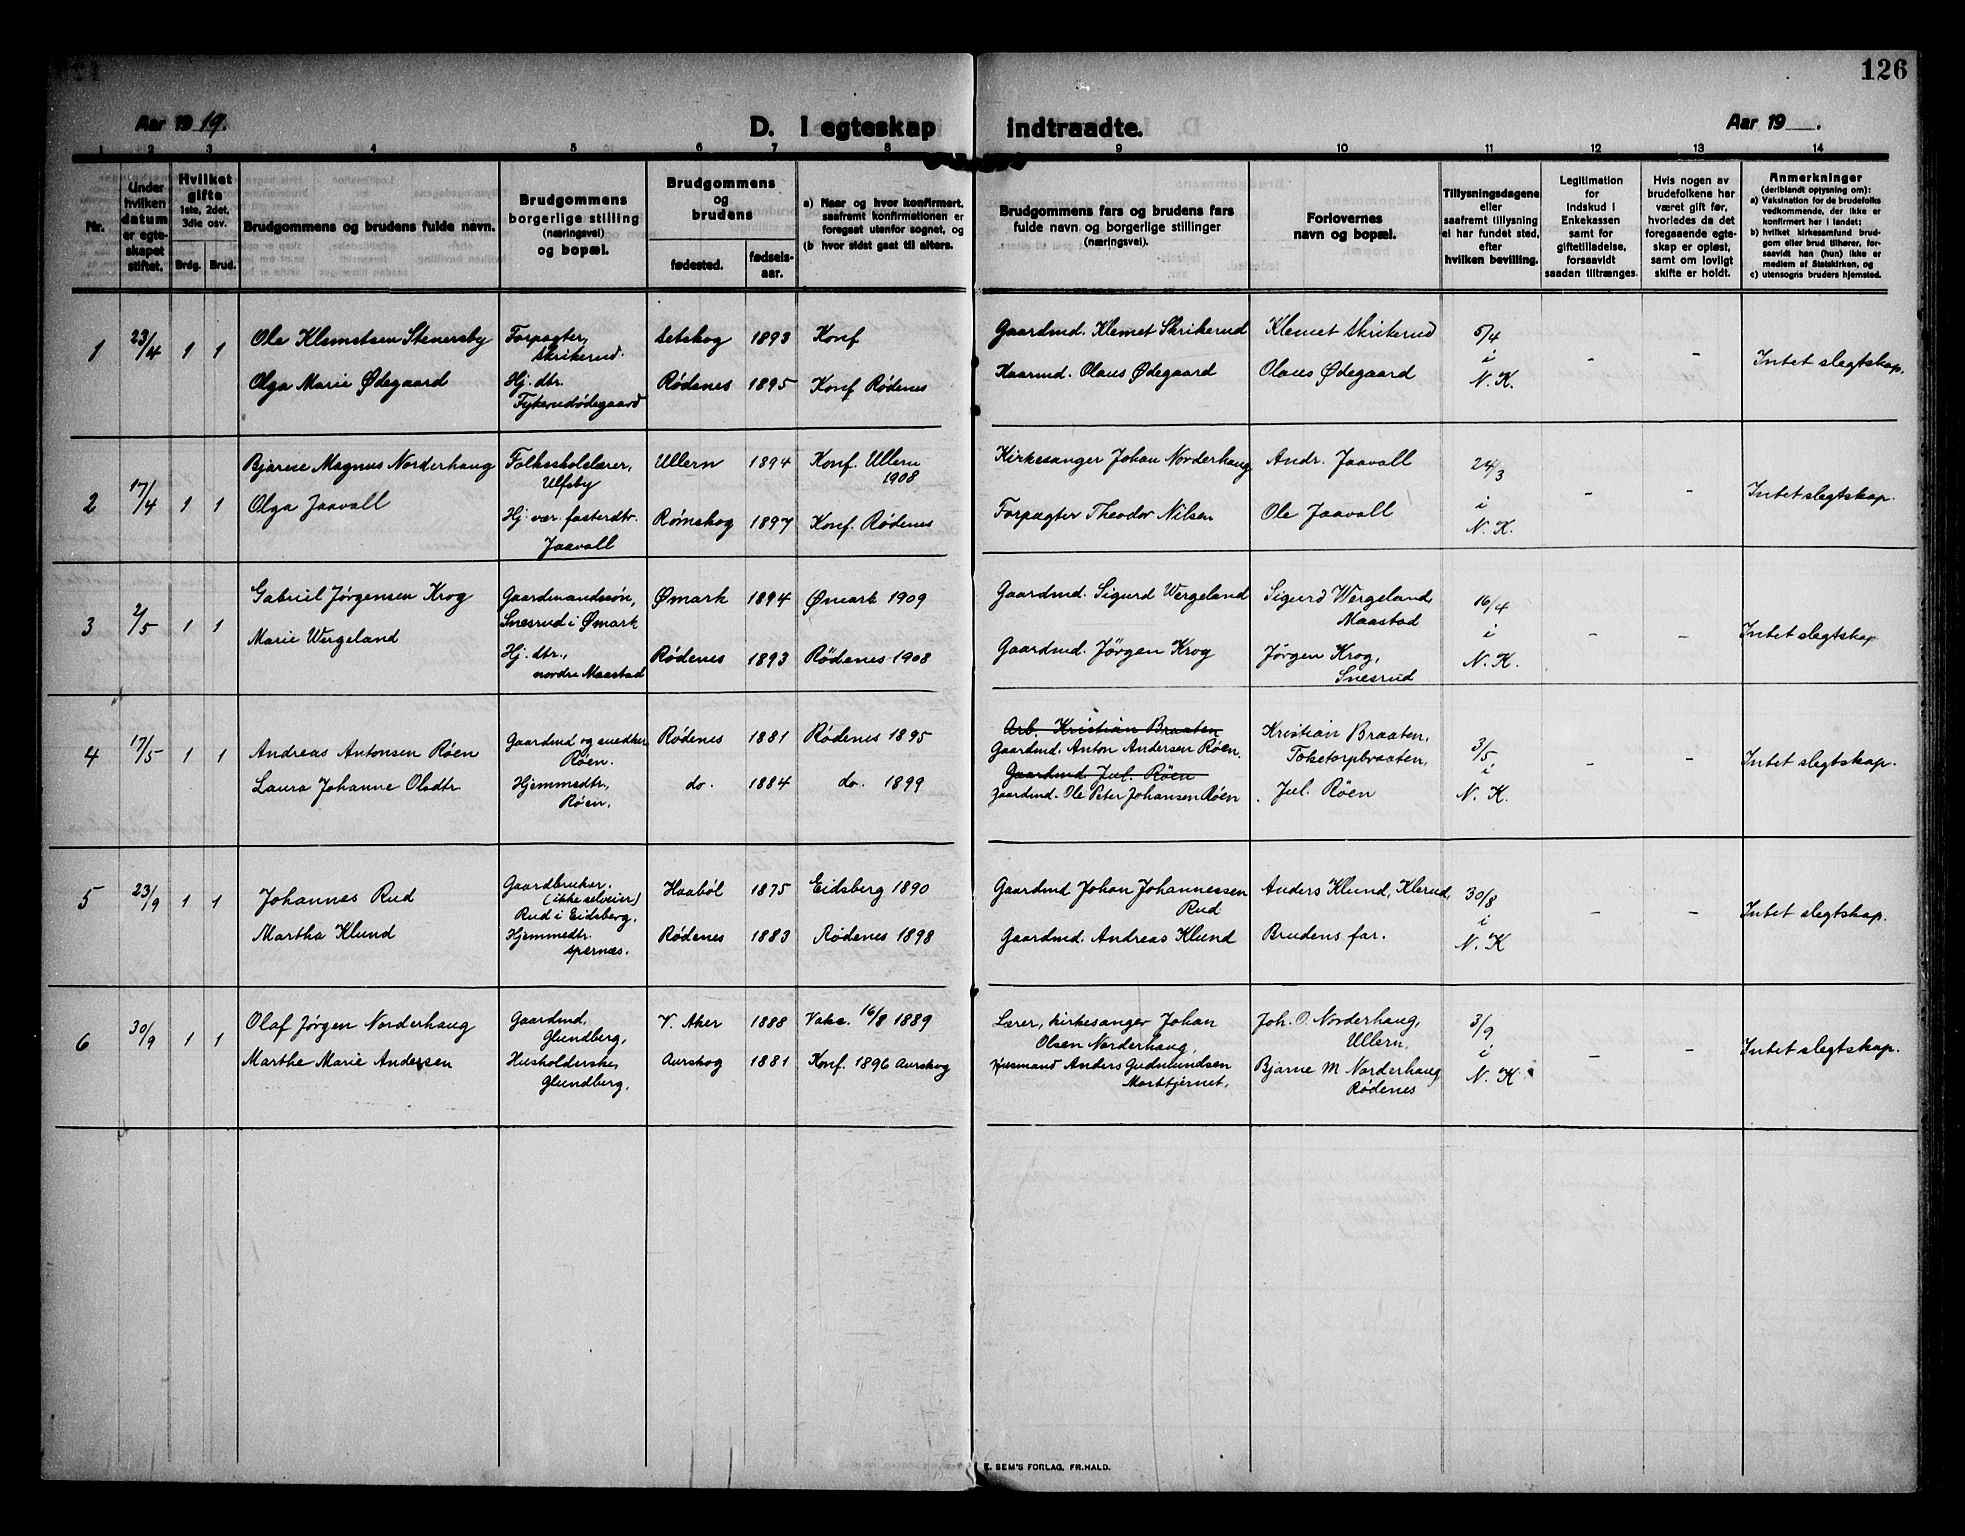 126
Aar 1919.
D. I egteskap indtraadte.
Aar 19 .
1 2 3 4 5 6 7 8 9 10 11 12 13 14
Nr.
Under
hvilken
datum
er egte-
skapet
stiftet.
Hvilket
gifte
1ste, 2det,
3die osv.
Brdg. Brud.
Brudgommens og brudens fulde navn.
Brudgommens
borgerlige stilling
(næringsvei)
og bopæl.
Brudgommens
og
brudens
fødested.
fødsels-
aar.
a) Naar og hvor konfirmert,
saafremt konfirmationen er
foregaat utenfor sognet, og
(b hvor sidst gaat til alters.
Brudgommens fars og brudens fars
fulde navn og borgerlige stillinger
(næringsvei).
Forlovernes
navn og bopæl.
Tillysningsdagene
eller
saafremt tillysning
ei har fundet sted,
efter
hvilken bevilling.
Legitimation
for
indskud i
Enkekassen
samt for
giftetilladelse,
forsaavidt
saadan tiltrænges.
Hvis nogen av
brudefolkene har
været gift før,
hvorledes da det
foregaaende egte-
skap er opløst,
samt om lovligt
skifte er holdt.
Anmerkninger
(deriblandt oplysning om):
a) Vaksination for de brudefolks
vedkommende, der ikke er
konfirmert her i landet;
b) hvilket kirkesamfund brud-
gom eller brud tilhører, for-
saavidt han (hun) ikke er
medlem af Statskirken, og
c) utensogns bruders hjemsted.
1 23/4 1 1
Ole Klemetsen Stenersby
Olga Marie Ødegaard
Forpagter,
Skrikerud.
Hj. dtr.
Fykerudødegaard
Setskog 1893 Konf
Rødenes 1895 Konf Rødenes
Gaardmd. Klemet Skrikerud
Kaarmd. Olaus Ødegaard
Klemet Skrikerud
Olaus Ødegaard
5/4
i
N. K.
- -
Intet slegtskap.
2 17/4 1 1
Bjarne Magnus Norderhaug
Olga Jaavall
Folkeskolelærer,
Ulfsby
Hj. vær. fosterdtr.
Jaavall
Ullern 1894 Konf. Ullern
1908
Rømskog 1897 Konf. Rødenes
Kirkesanger Johan Norderhaug
Forpagter Theodor Nilsen
Andr. Jaavall
Ole Jaavall
24/3
i
N. K.
- -
Intet slegtskap.
3 2/5 1 1
Gabriel Jørgensen Krog
Marie Wergeland
Gaardmandssøn,
Snesrud i Ømark
Hj. dtr.,
nordre Maastad
Ømark 1894 Ømark 1909
Rødenes 1893 Rødenes 1908
Gaardmd. Sigurd Wergeland
Gaardmd. Jörgen Krog
Sigurd Wergeland,
Maastad
Jørgen Krog,
Snesrud
16/4
i
N. K.
- -
Intet slegtskap
4 17/5 1 1
Andreas Antonsen Røen
Laura Johanne Olsdtr
Gaardmd og snedker
Røen.
Hjemmedtr,
Røen.
Rødenes 1881 Rødenes 1895
do. 1884 do. 1899
Arb. Kristian Braaten
Gaardmd. Anton Andersen Røen.
Gaardmd. Jul. Røen
Gaardmd. Ole Peter Johansen Røen
Kristian Braaten,
Toketorpbraaten,
Jul. Røen
3/5
i
N. K.
- -
Intet slegtskap.
5 23/9 1 1
Johannes Rud
Martha Klund
Gaardbruker,
(ikke selveier)
Rud i Eidsberg.
Hjemmedtr.
Spernæs.
Haaböl 1875 Eidsberg 1890
Rødenes 1883 Rødenes 1898
Gaardmd Johan Johannessen
Rud
Gaardmd. Andreas Klund
Anders Klund, Klerud,
Brudens far.
30/8
i
N. K
- -
Intet slegtskap.
6 30/9 1 1
Olaf Jørgen Norderhaug
Marthe Marie Andersen
Gaardmd,
Glundberg,
Husholderske,
Glundberg,
V. Aker 1888 Vakc. 16/8 1889
Aurskog 1881 Konf. 1896 Aurskog
Lærer, kirkesanger Johan
Olsen Norderhaug,
Husmand Anders Gudmundsen
Morttjernet,
Joh. O. Norderhaug,
Ullern.
Bjarne M Norderhaug
Rødenes
3/9
i
N. K.
- -
Intet slegtskap.
E. SEM'S FORLAG, FR.HALD.